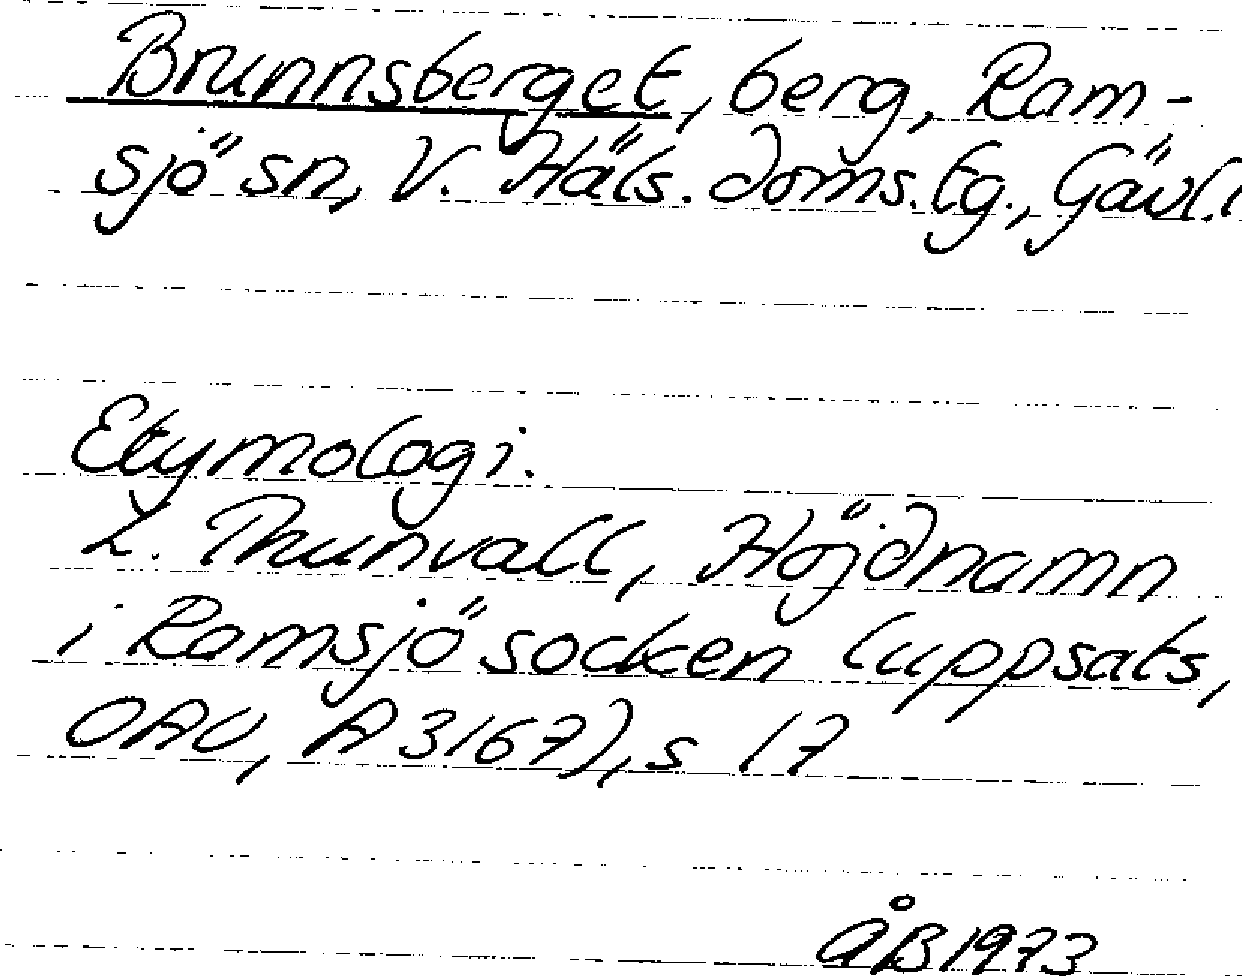 Brunnsberget, berg, Ram-
sjö sn, V. Häls. doms. tg., Gävl. l
Etymologi.
L. Thunvall, Höjdnamn
i Ramsjö socken (uppsats,
OAU, A 3167), s 17
ÅB 1973